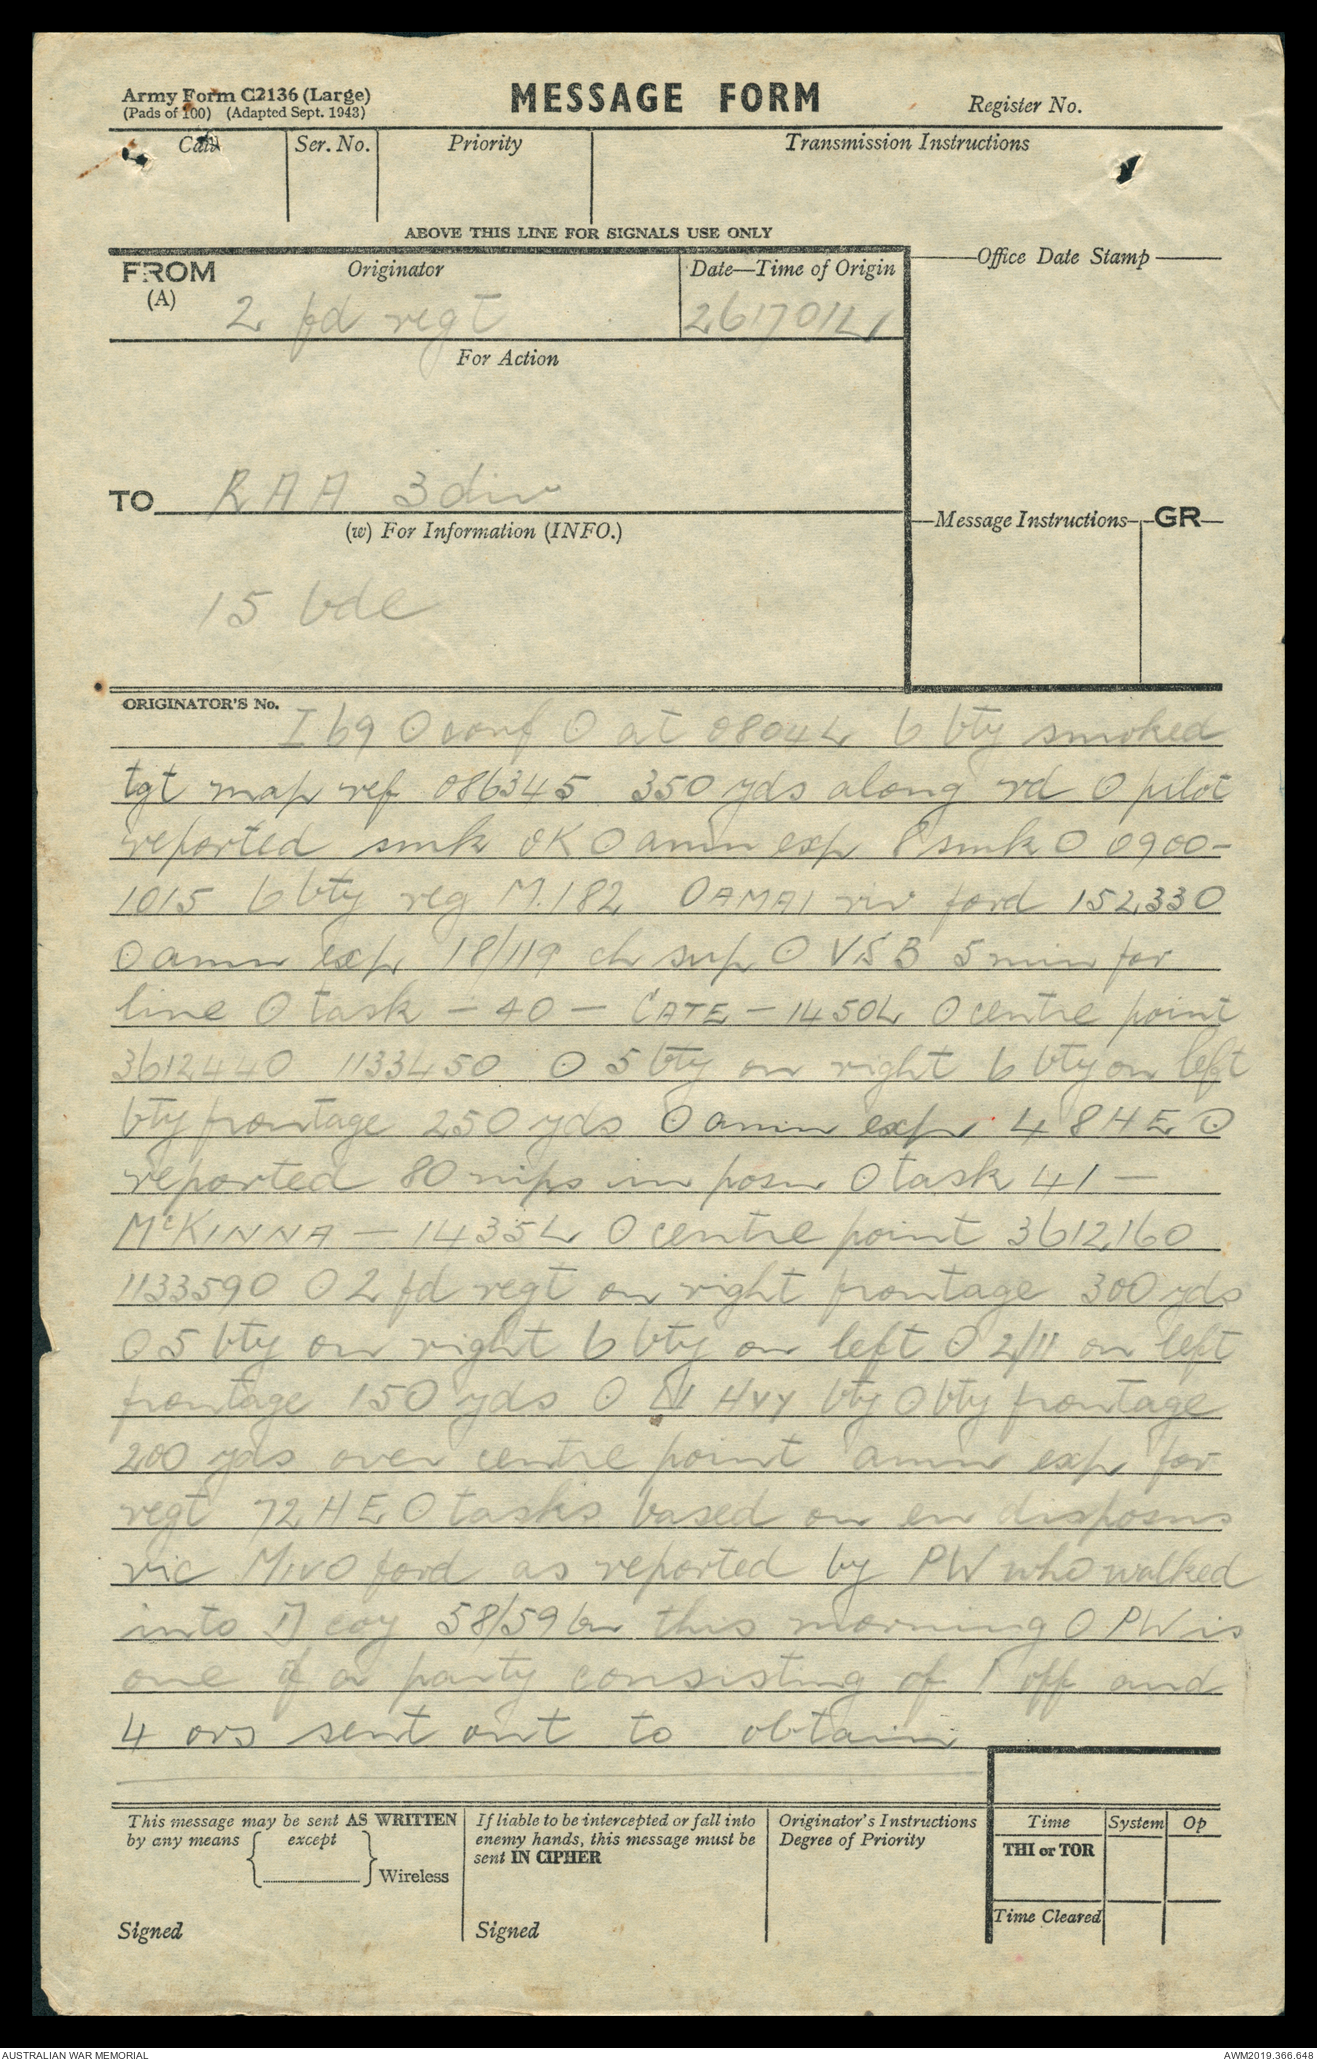 Army Form C2136 (Large)
(Pads of 100) (Adapted Sept. 1943)
MESSAGE FORM
Register No.
Call
Ser. No.
Priority
Transmission Instructions
ABOVE THIS LINE FOR SIGNALS USE ONLY
FROM
(A)
Originator
2 fd regt
Date—Time of Origin
261701L
Office Date Stamp
For Action
TO RAA 3 div
(w) For Information (INFO.)
15 bde
Message Instructions
GR
ORIGINATOR'S No.
I 69 O conf O at 0804L 6 bty smoked
tgt map ref 086345 350 yds along rd O pilot
reported smk OK O amn exp 8 smk O 0900-
1015 6 bty reg M.182 OAMAI riv ford 152330
O amn exp 18/119 ch sup O VSB 5 min for
line O task - 40 - CATE - 1450L O centre point
3612440 1133450 O 5 bty on right 6 bty on left
bty frontage 250 yds O amn exp 48 HE O
reported 80 nips in posn O task 41 -
McKINNA - 1435L O centre point 3612160
1133590 O 2 fd regt on right frontage 300 yds
O 5 bty on right 6 bty on left O 2/11 on left
frontage 150 yds O U Hvy bty O bty frontage
200 yds over centre point amn exp for
regt 72 HE O tasks based on en disposns
vic MIVO ford as reported by PW who walked
into D coy 58/59 bn this morning O PW is
one of a party consisting of 1 off and
4 ors sent out to obtain
This message may be sent AS WRITTEN
by any means { except } Wireless
Signed
If liable to be intercepted or fall into
enemy hands, this message must be
sent IN CIPHER
Signed
Originator's Instructions
Degree of Priority
Time
System
Op
THI or TOR
Time Cleared
AUSTRALIAN WAR MEMORIAL
AWM2019.366.648